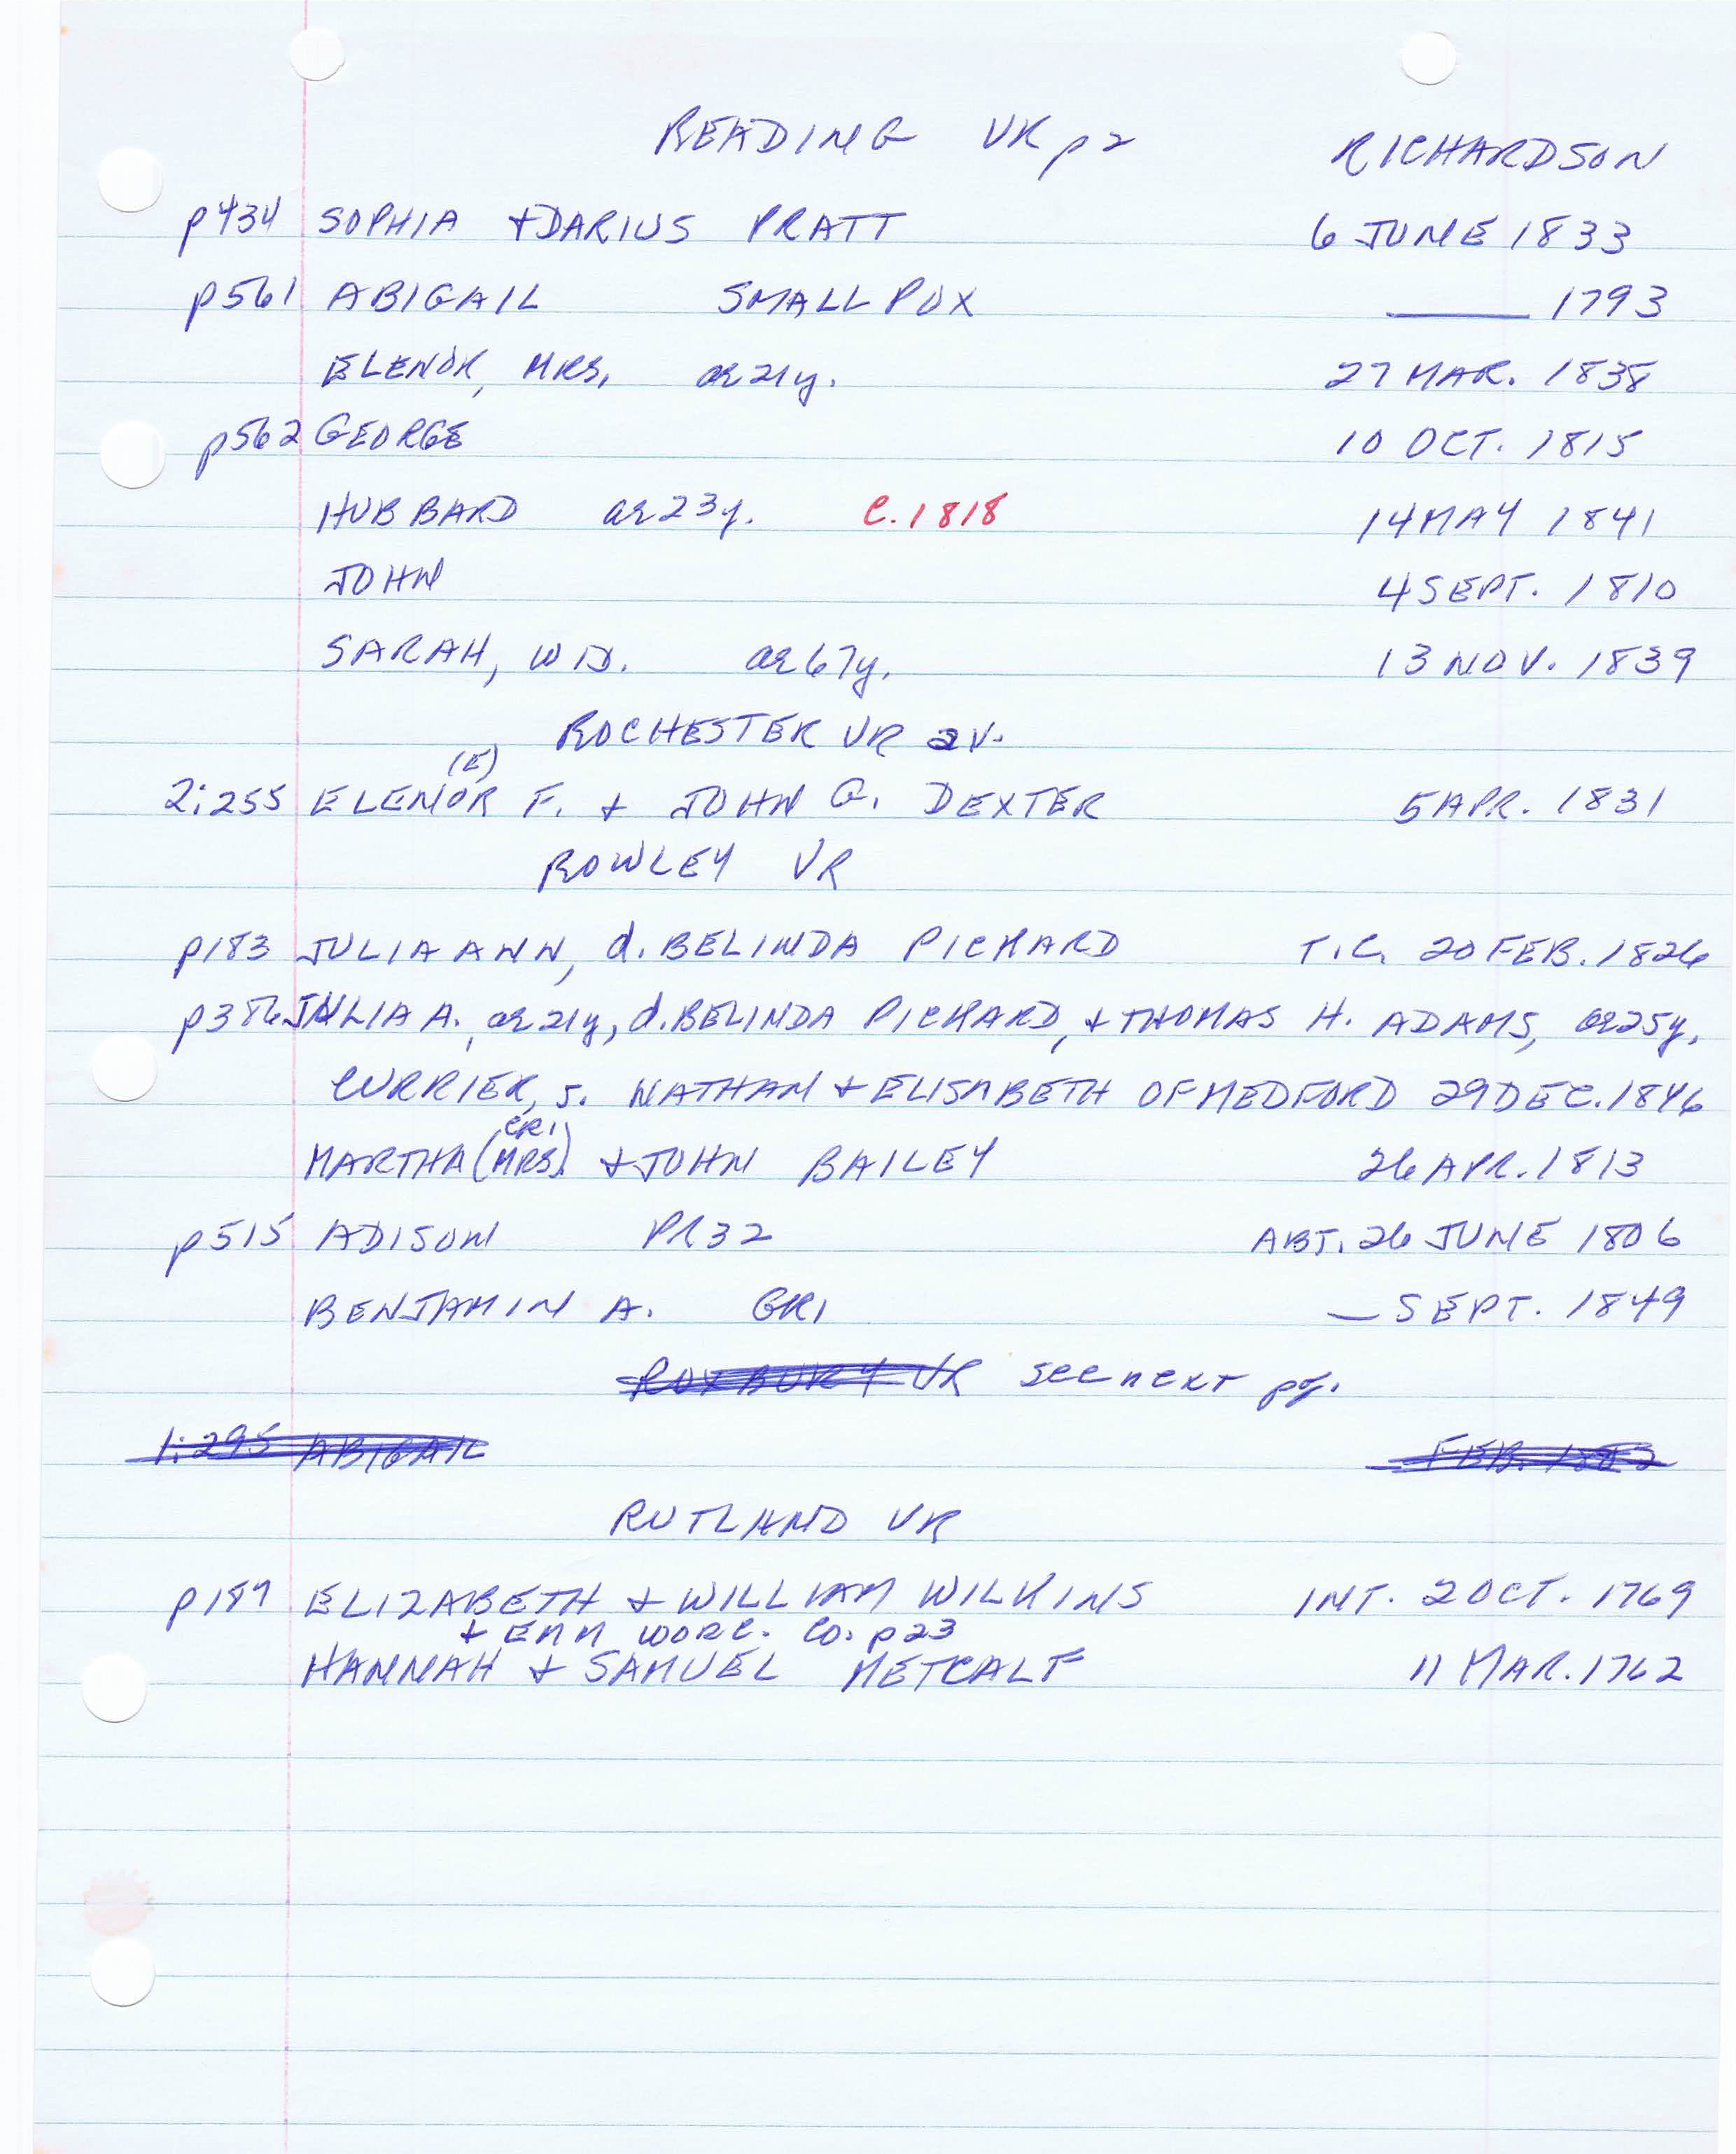 READING VR p2 RICHARDSON
p434 SOPHIA + DARIUS PRATT 6 JUNE 1833
p561 ABIGAIL SMALL POX ____ 1793
ELENOR, MRS, ae 21y. 27 MAR. 1838
p562 GEORGE 10 OCT. 1815
HUBBARD ae 23y. C. 1818 14 MAY 1841
JOHN 4 SEPT. 1810
SARAH, WD. ae 67y. 13 NOV. 1839
ROCHESTER VR 2V.
(E)
2:255 ELENOR F. + JOHN G. DEXTER 5 APR. 1831
ROWLEY VR
p183 JULIA ANN, d. BELINDA PICKARD T.C. 20 FEB. 1826
p386 JULIA A., ae 21y, d. BELINDA PICKARD, + THOMAS H. ADAMS, ae 25y,
CURRIER, s. NATHAN + ELISABETH OF MEDFORD 29 DEC. 1846
CR1
MARTHA (MRS) + JOHN BAILEY 26 APR. 1813
p515 ADISON PR32 ABT. 26 JUNE 1806
BENJAMIN A. GR1 — SEPT. 1849
ROXBURY VR see next pg.
1:295 ABIGAIL — FEB.
RUTLAND VR
p189 ELIZABETH + WILLIAM WILKINS INT. 2 OCT. 1769
+ EMM WORC. CO. p23
HANNAH + SAMUEL METCALF 11 MAR. 1762